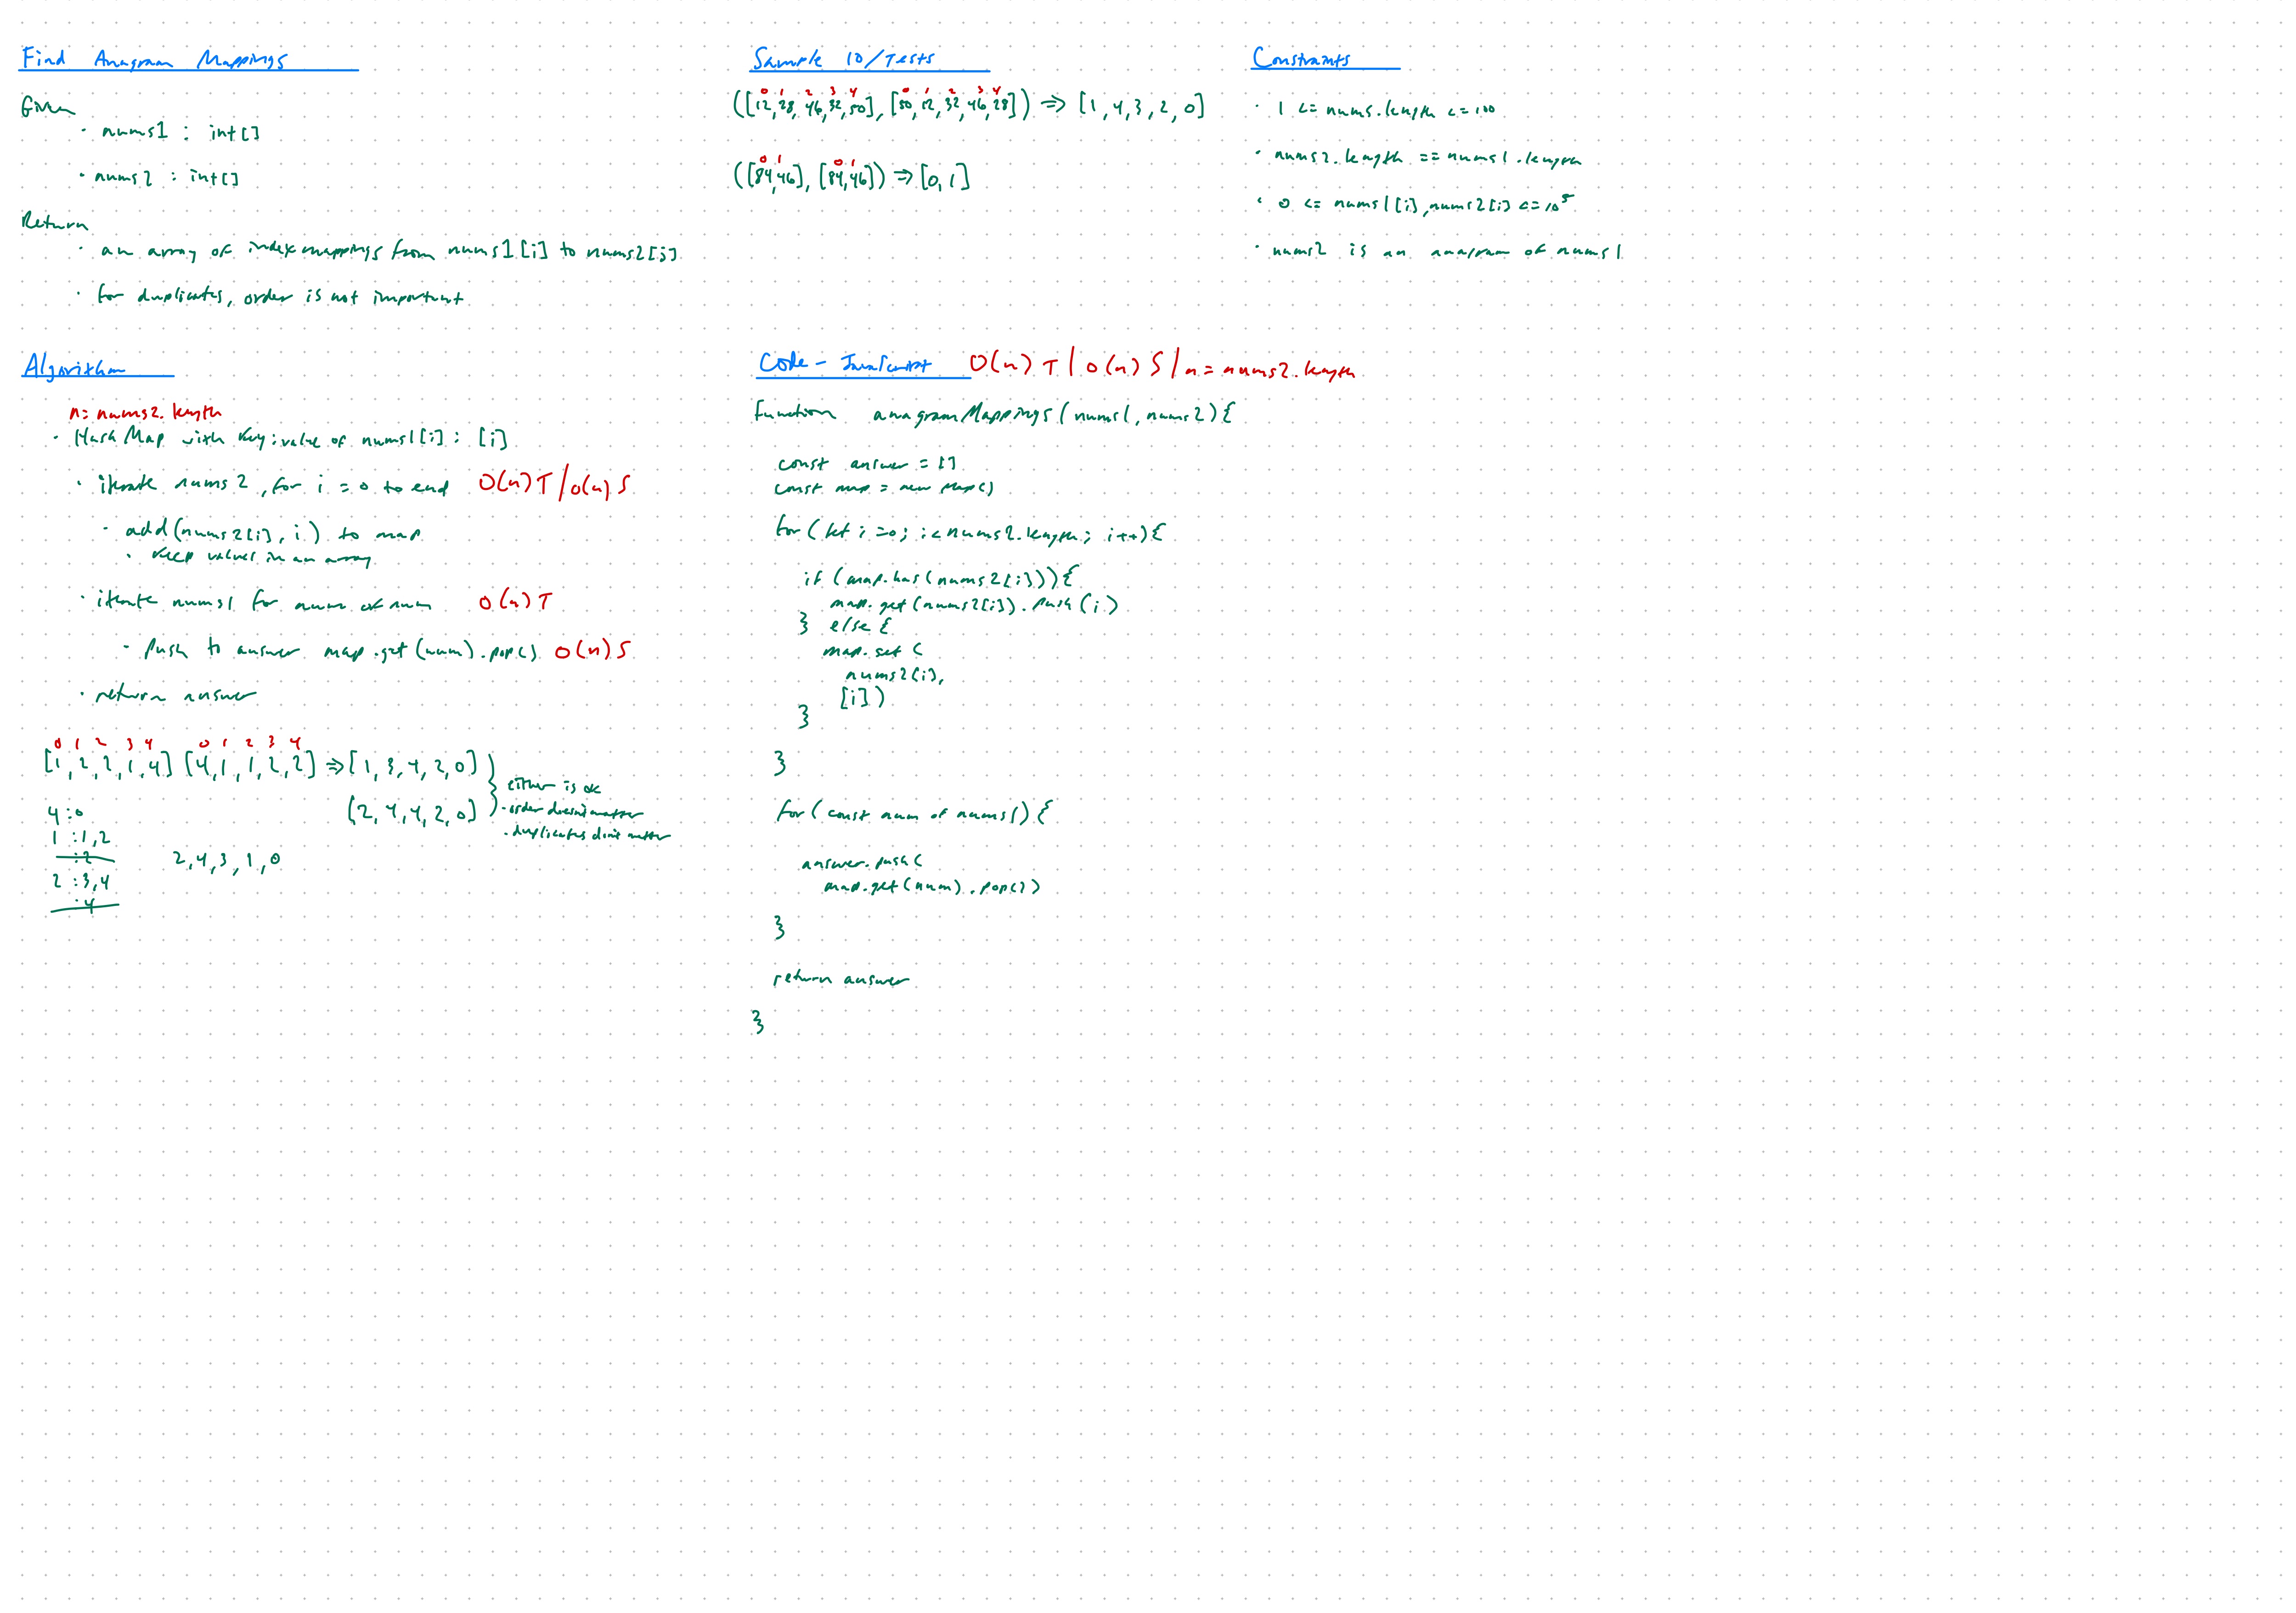 Find Anagram Mappings
Given
· nums1 : int[]
· nums2 : int[]
Return
· an array of index mappings from nums1[i] to nums2[j]
· for duplicates, order is not important
Sample IO/Tests
0 1 2 3 4 0 1 2 3 4
([12,28,46,32,50], [50,12,32,46,28]) => [1,4,3,2,0]
0 1 0 1
([84,46], [84,46]) => [0,1]
Constraints
· 1 <= nums.length <= 100
· nums2.length == nums1.length
· 0 <= nums1[i], nums2[i] <= 10^5
· nums2 is an anagram of nums1
Algorithm
n = nums2.length
· HashMap with key:value of nums1[i] : [i]
· iterate nums2, for i = 0 to end O(n) T / O(n) S
· add(nums2[i], i) to map
· keep values in an array
· iterate nums1 for num of num O(n) T
· Push to answer map.get(num).pop() O(n) S
· return answer
0 1 2 3 4 0 1 2 3 4
[1,2,2,1,4] [4,1,1,2,2] => [1,3,4,2,0]
[2,4,4,2,0]
either is ok
· order doesn't matter
· duplicates don't matter
4 : 0
1 : 1,2
: 2
2 : 3,4
: 4
2,4,3,1,0
Code - JavaScript O(n) T | O(n) S | n = nums2.length
function anagramMappings(nums1, nums2){
const answer = []
const map = new Map()
for (let i = 0; i < nums2.length; i++){
if (map.has(nums2[i])){
map.get(nums2[i]).push(i)
} else {
map.set(
nums2[i],
[i])
}
}
for (const num of nums1){
answer.push(
map.get(num).pop())
}
return answer
}